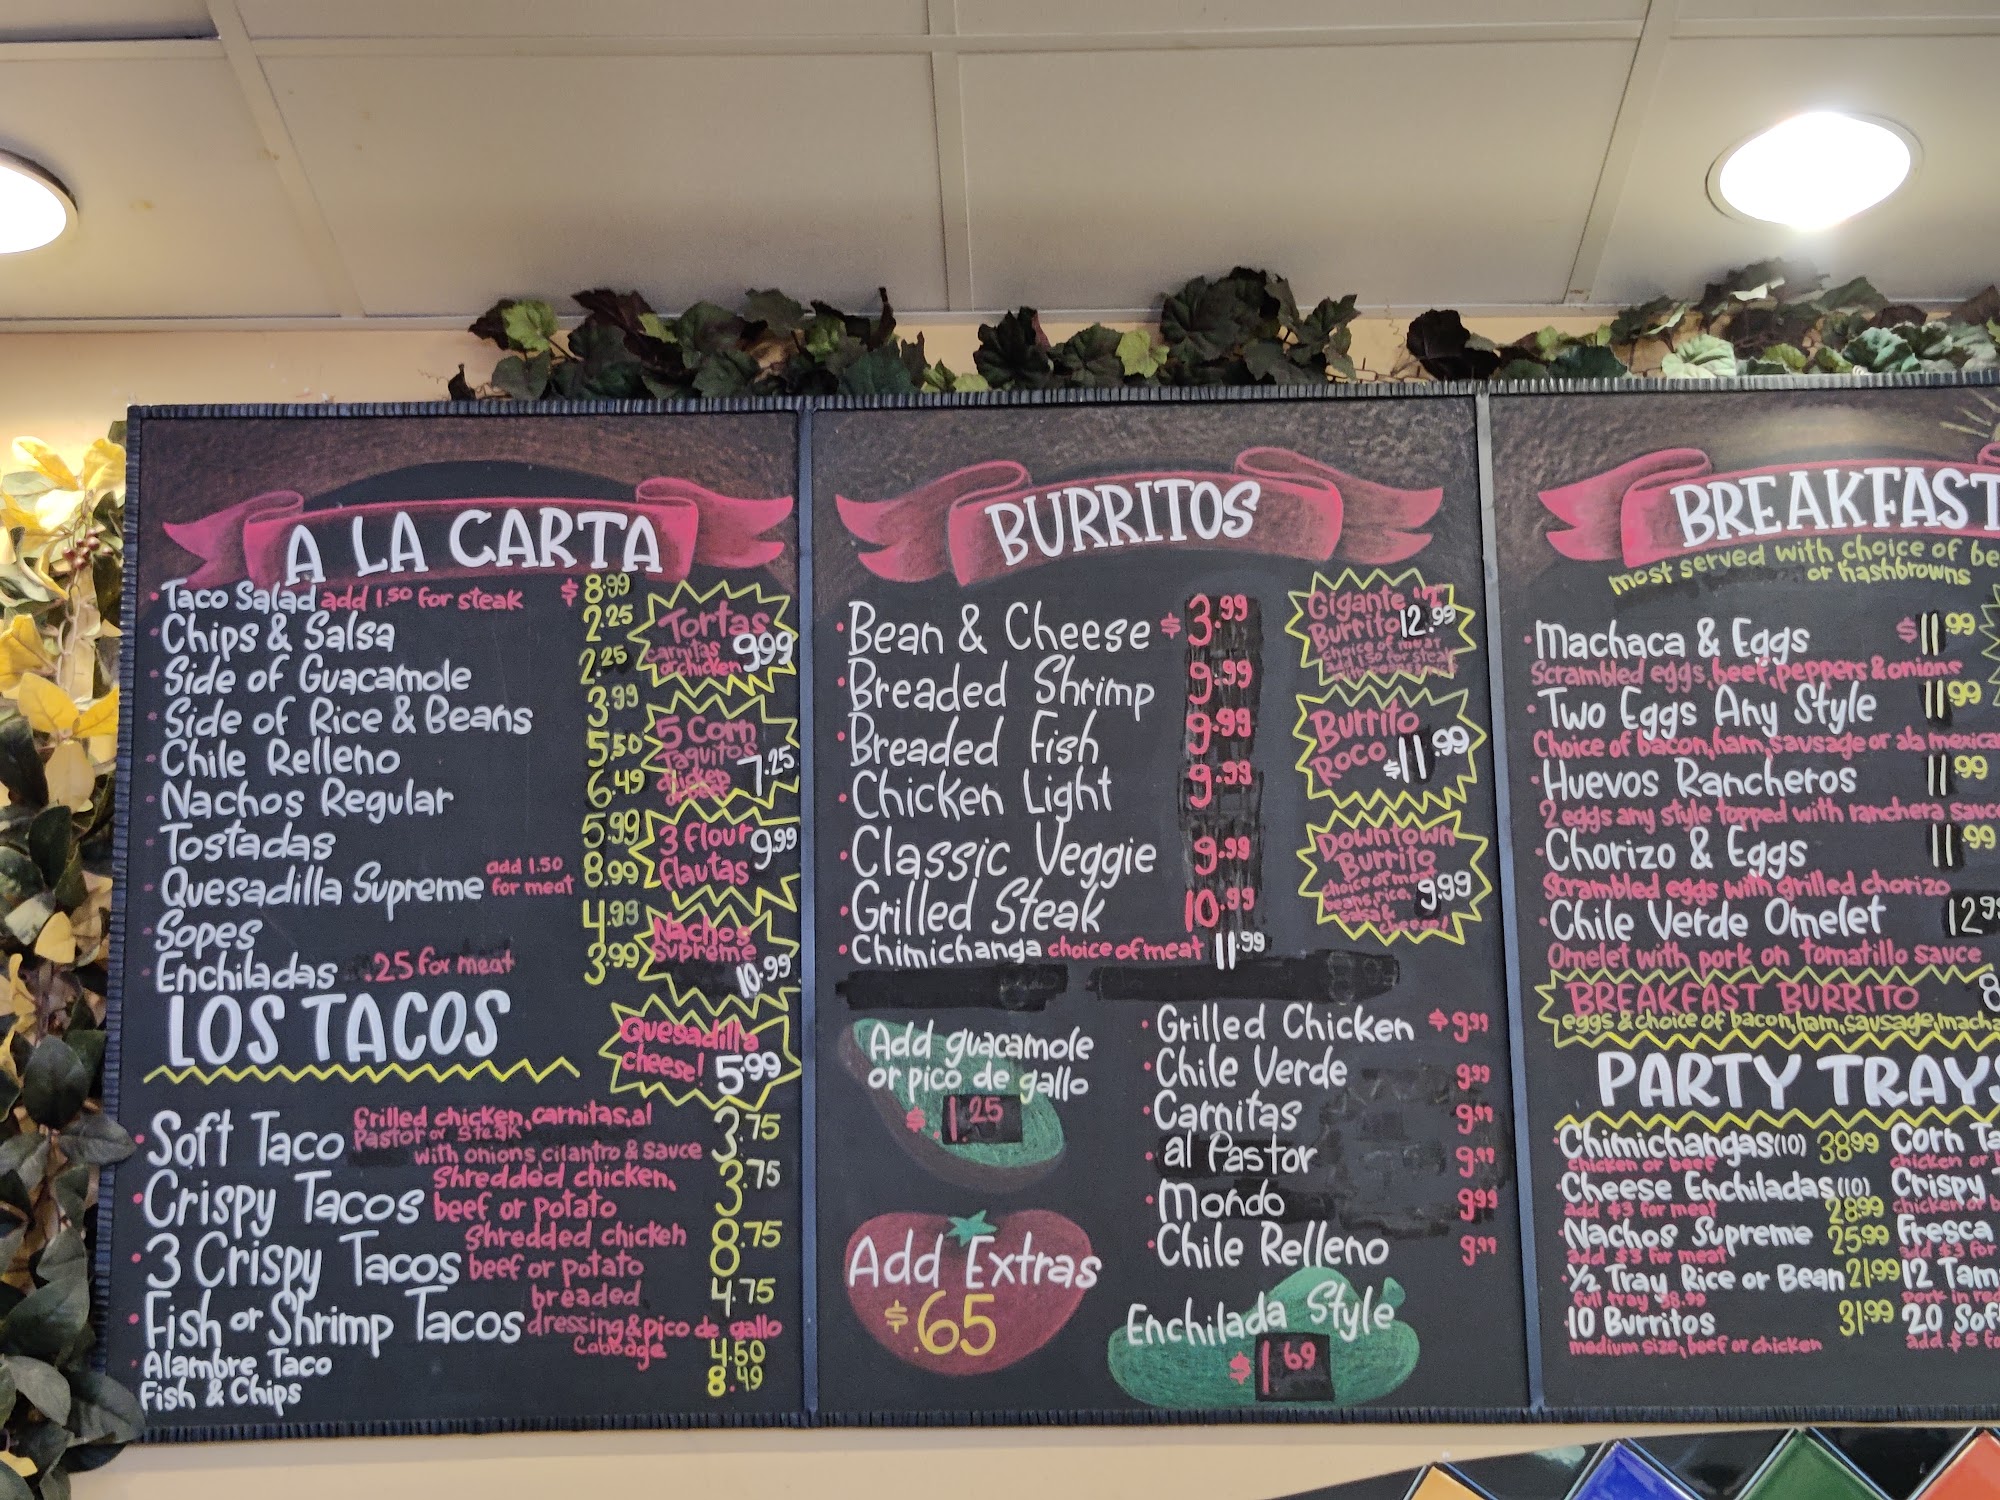 A LA CARTA
Taco Salad add 1.50 for steak $ 8.99
Chips & Salsa 2.25
Side of Guacamole 2.25
Side of Rice & Beans 3.99
Chile Relleno 5.50
Nachos Regular 6.49
Tostadas 5.99
Quesadilla Supreme add 1.50 for meat 8.99
Sopes 4.99
Enchiladas .25 for meat 3.99
Tortas
carnitas
or chicken 9.99
5 Corn
Taquitos
7.25
3 flour
flautas 9.99
Nachos
Supreme
10.99
Quesadilla
cheese! 5.99
LOS TACOS
Soft Taco Grilled chicken, carnitas, al
Pastor or steak
with onions, cilantro & sauce 3.75
Crispy Tacos Shredded chicken,
beef or potato 3.75
3 Crispy Tacos Shredded chicken
beef or potato 8.75
Fish or Shrimp Tacos breaded
dressing & pico de gallo
Cabbage 4.75
Alambre Taco 4.50
Fish & Chips 8.49
BURRITOS
Bean & Cheese $ 3.99
Breaded Shrimp 9.99
Breaded Fish 9.99
Chicken Light 9.99
Classic Veggie 9.99
Grilled Steak 10.99
Chimichanga choice of meat 11.99
Gigante
Burrito 12.99
choice of meat
add 1.50 for steak
Burrito
Roco $11.99
Downtown
Burrito
choice of meat
beans, rice,
salsa &
cheese! 9.99
Add guacamole
or pico de gallo
$ 1.25
Add Extras
$ .65
Grilled Chicken $ 9.99
Chile Verde 9.99
Carnitas 9.99
al Pastor 9.99
Mondo 9.99
Chile Relleno 9.99
Enchilada Style
$ 1.69
BREAKFAST
most served with choice of be
or hashbrowns
Machaca & Eggs $11.99
Scrambled eggs, beef, peppers & onions
Two Eggs Any Style 11.99
Choice of bacon, ham, sausage or ala mexica
Huevos Rancheros 11.99
2 eggs any style topped with ranchera sauce
Chorizo & Eggs 11.99
Scrambled eggs with grilled chorizo
Chile Verde Omelet 12.99
Omelet with pork on tomatillo sauce
BREAKFAST BURRITO 8
eggs & choice of bacon, ham, sausage, macha
PARTY TRAYS
Chimichangas (10) 38.99
chicken or beef
Cheese Enchiladas (10)
add $3 for meat 28.99
Nachos Supreme 25.99
add $3 for meat
1/2 Tray Rice or Bean 21.99
full tray 38.99
10 Burritos 31.99
medium size, beef or chicken
Corn Ta
chicken or b
Crispy T
chicken or b
Fresca
add $3 for
12 Tam
Pork in red
20 Sof
add $5 fo